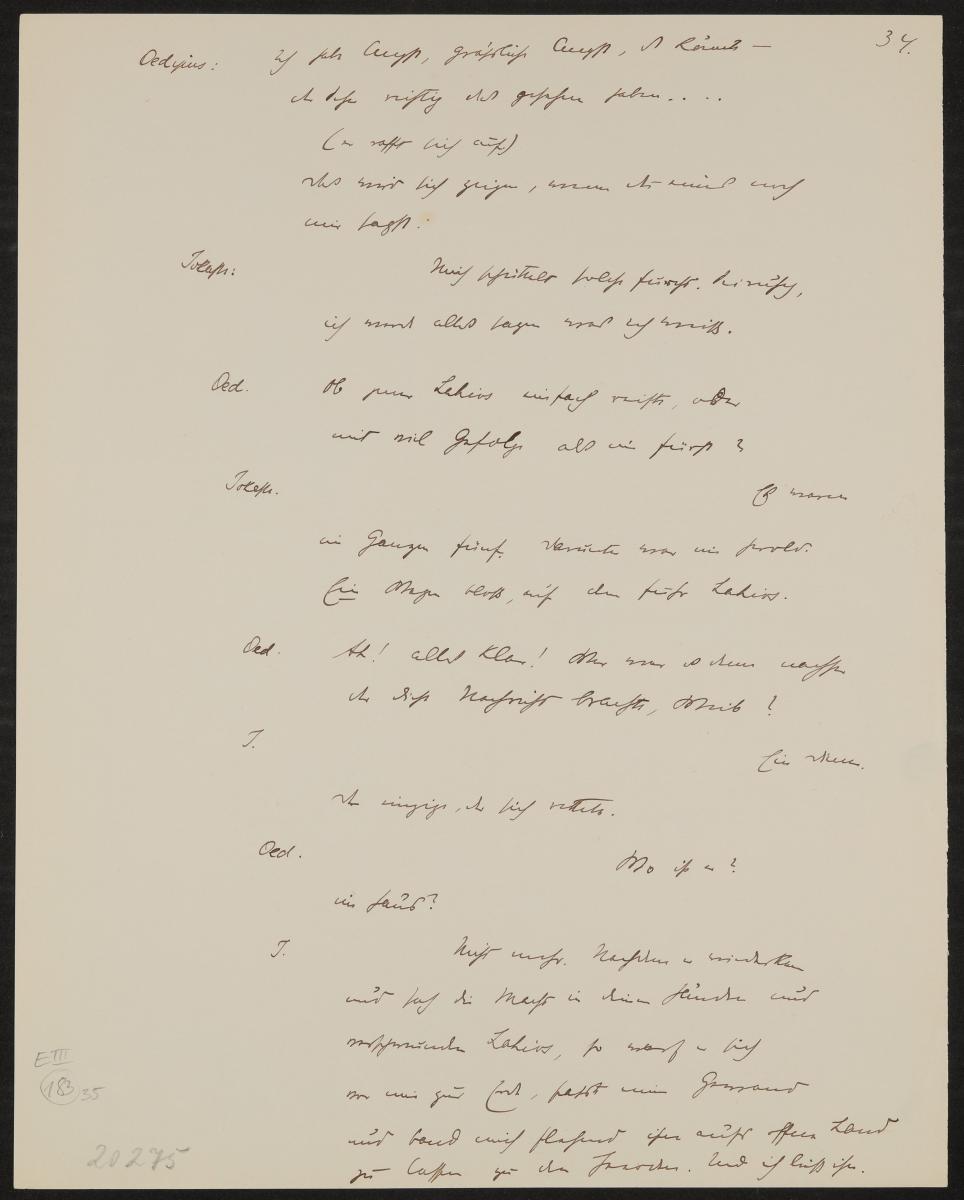 34.
Oedipus: Ich habe Angst, gräßliche Angst, es könnte —
der Seher richtig das gesehen haben....
(er rafft sich auf)
Das wird sich zeigen, wenn du eines noch
mir sagst.
Jokaste: Mich schüttelt solche Furcht.
ich werde alles sagen was ich weiß.
Oed. Ob jener Lahios einfach reiste, oder
mit viel Gefolge als ein Fürst?
Jokaste. Es waren
im Ganzen fünf. Darunter war ein Herold.
Ein Wagen bloß, auf dem fuhr Lahios.
Oed. Ah! alles klar! Wer war es denn nachher
der diese Nachricht brachte, Weib?
J. Ein Diener.
Der einzige, der sich rettete.
Oed. Wo ist er?
im Haus?
J. Nicht mehr. Nachdem er wiederkam
und sah die Macht in deinen Händen und
verschwunden Lahios, so warf er sich
vor mir zur Erde, faßt mein Gewand
und band mich flehend ihn aufs offene Land
zu lassen zu den Heerden. Und ich ließ ihn.
E III
183/35
20275